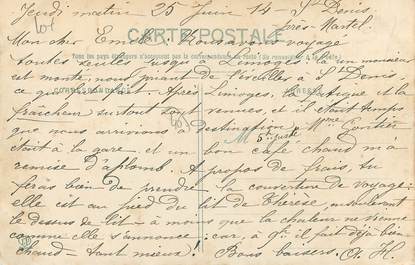 Jeudi matin 25 Juin 14 - St Denis,
près-Martel.
CARTE POSTALE
Mon cher Emile, Nous avons voyagé
toutes seules jusqu'à Limoges où un monsieur
est monté, nous priant de l'éveiller à St Denis,
ce qui fut fait. Après Limoges, la fatigue et la
fraîcheur surtout sont venues, et il était temps
que nous arrivions à destination. Mme Fortiès
était à la gare, et un bon café chaud m'a
remise d'aplomb. A propos de frais, tu
feras bien de prendre la couverture de voyage,
elle est au pied du lit de Thérèse, en soulevant
le dessus de lit - à moins que la chaleur ne vienne
comme elle s'annonce : car, à 9h il fait déjà bien
chaud - tant mieux ! Bons baisers, A. H.